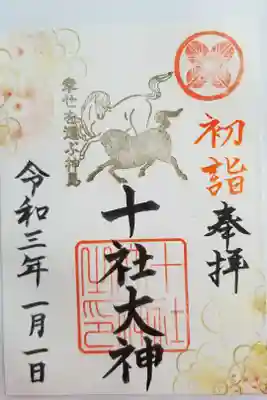 初詣
奉拝
十社大神
幸せを運ぶ神馬
令和三年一月一日